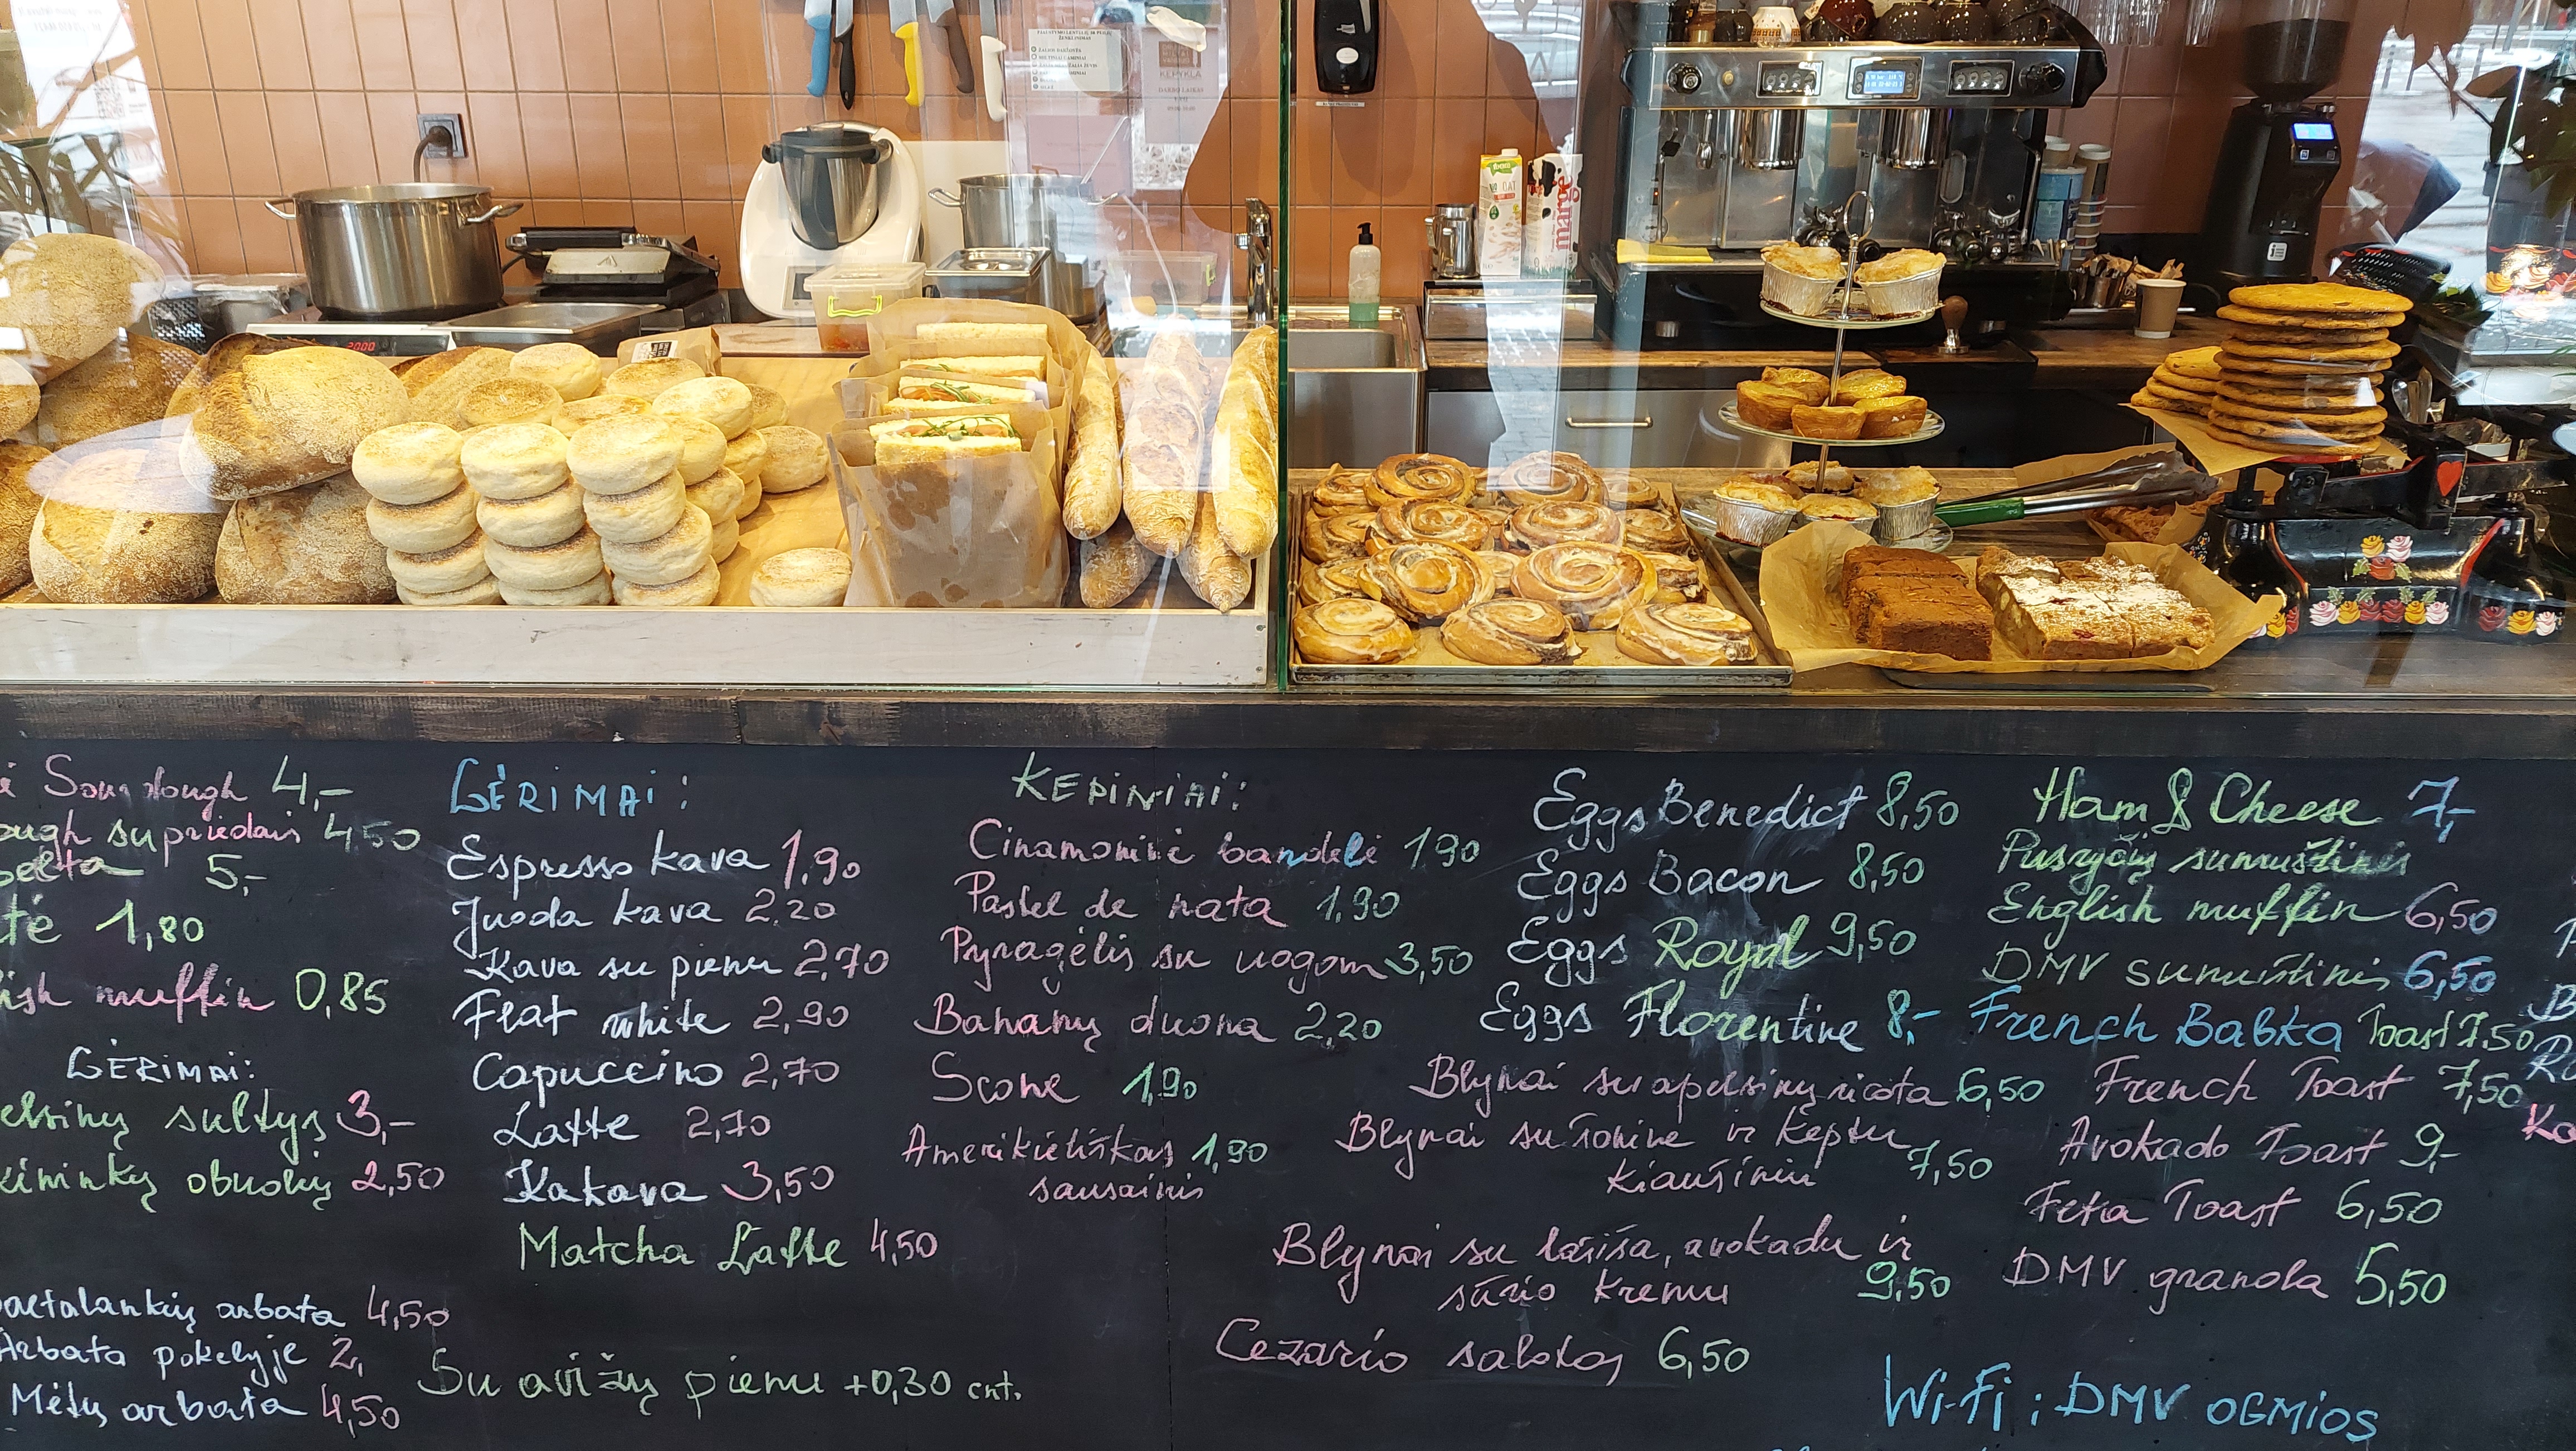 KEPYKLA
DARBO LAIKAS
2000
Sourdough 4,-
su priedais 4,50
5,-
1,80
muffin 0,85
GĖRIMAI:
sultys 3,-
obuolių 2,50
arbata 4,50
Arbata pokelyje 2,
Mėtų arbata 4,50
GĖRIMAI:
Espresso kava 1,90
Juoda kava 2,20
Kava su pienu 2,70
Flat white 2,90
Capuccino 2,70
Latte 2,70
Kakava 3,50
Matcha Latte 4,50
Su avižų pienu +0,30 cnt.
KEPINIAI:
Cinamoninė bandelė 1,90
Pastel de nata 1,90
Pyragėlis su uogom 3,50
Bananų duona 2,20
Scone 1,90
Amerikietiškas 1,90
sausainis
Eggs Benedict 8,50
Eggs Bacon 8,50
Eggs Royal 9,50
Eggs Florentine 8,-
Blynai su apelsinų ricota 6,50
Blynai su šonine ir keptu
kiaušiniu 7,50
Blynai su lašiša, avokadu ir
sūrio kremu 9,50
Cezario salotos 6,50
Ham & Cheese 7,-
Pusryčių sumuštinis
English muffin 6,50
DMV sumuštinis 6,50
French Babka Toast 7,50
French Toast 7,50
Avokado Toast 9,-
Feta Toast 6,50
DMV granola 5,50
Wi-Fi: DMV OGMIOS